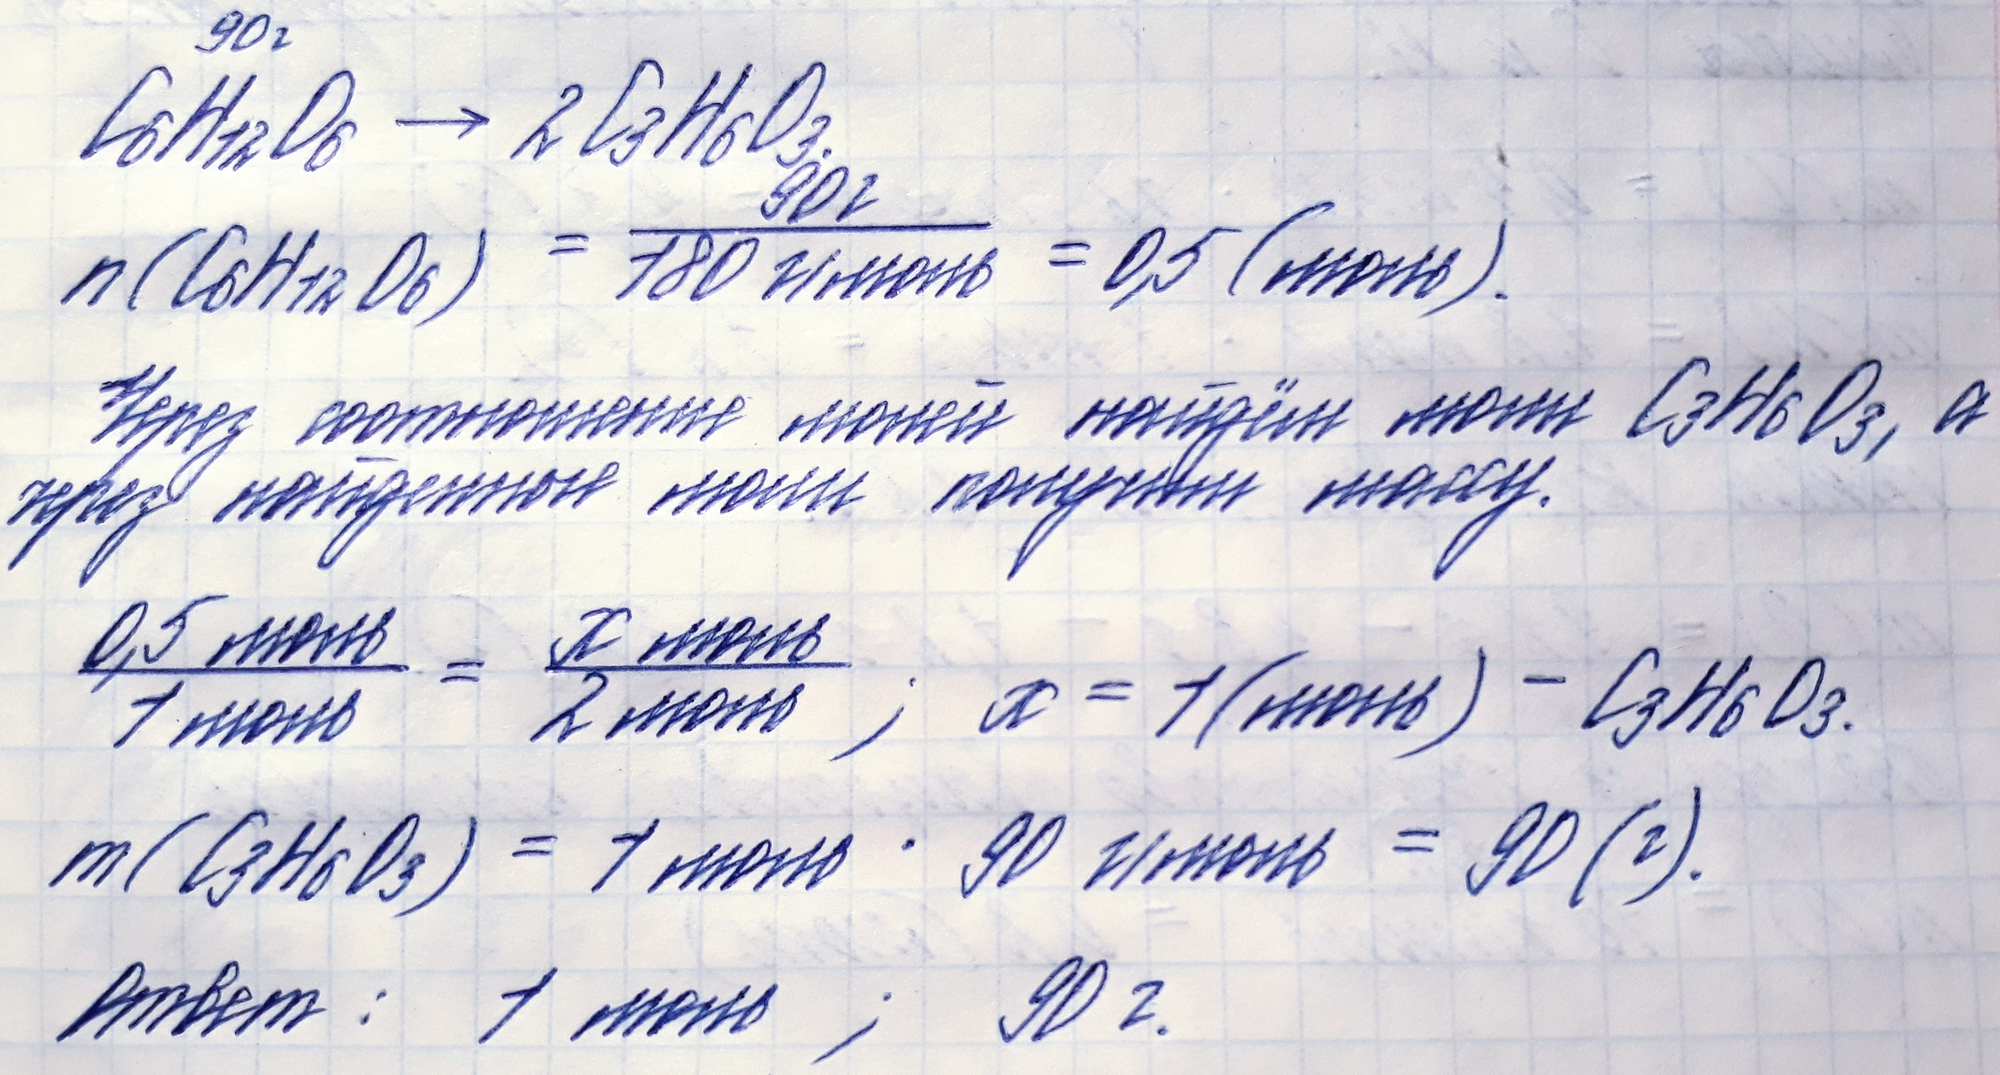 90г
C₆H₁₂O₆ → 2C₃H₆O₃.
n(C₆H₁₂O₆) = 90г / 180 г/моль = 0,5 (моль).
Через соотношение молей найдём моли C₃H₆O₃, а
через найденные моли получим массу.
0,5 моль / 1 моль = x моль / 2 моль ; x = 1(моль) – C₃H₆O₃.
m(C₃H₆O₃) = 1 моль · 90 г/моль = 90 (г).
Ответ : 1 моль ; 90 г.